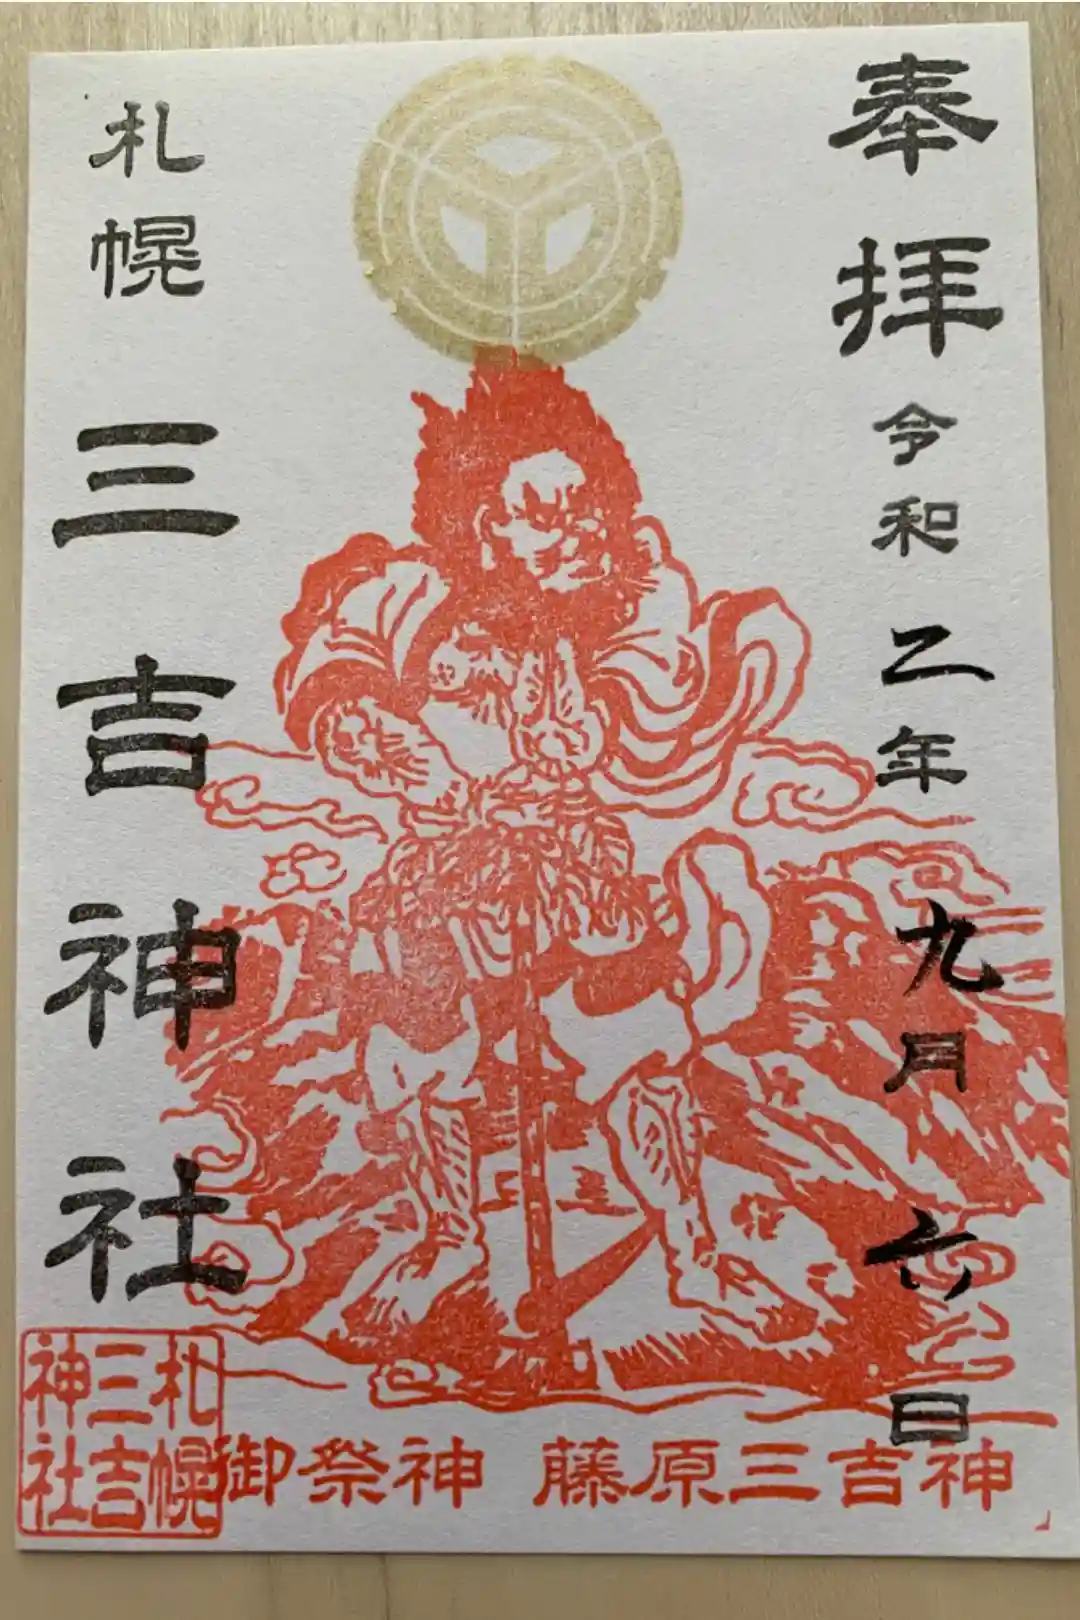 奉拝
令和二年九月六日
札幌
三吉神社
札幌
三吉
神社
御祭神 藤原三吉神